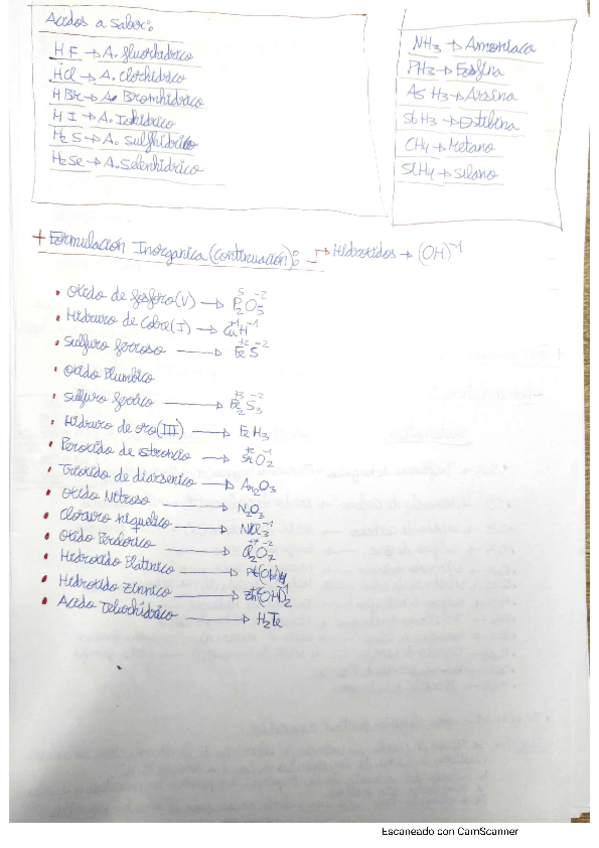 Acidos a saber:
HF → A. fluorhidrico
HCl → A. Clorhidrico
HBr → A. Bromhidrico
HI → A. Iohidrico
H2S → A. Sulfhidrico
H2Se → A. Selenhidrico
NH3 → Amoniaco
PH3 → Fosfina
AsH3 → Arsina
SbH3 → Estibina
CH4 → Metano
SiH4 → Silano
+ Formulación Inorganica (continuación): → Hidroxidos → (OH)-1
• Oxido de fosforo (V) → P2O5
• Hidruro de Cobre (I) → CuH
• Sulfuro ferroso → FeS
• Oxido Plumbico
• Sulfuro ferrico → Fe2S3
• Hidruro de oro (III) → FeH3
• Peroxido de estroncio → SrO2
• Trioxido de diarsenico → As2O3
• Oxido Nitroso → N2O3
• Cloruro niquelico → NiCl3
• Oxido Perclorico → Cl2O7
• Hidroxido Platinico → Pt(OH)4
• Hidroxido Zinnico → Zn(OH)2
• Acido Telurhidrico → H2Te
Escaneado con CamScanner